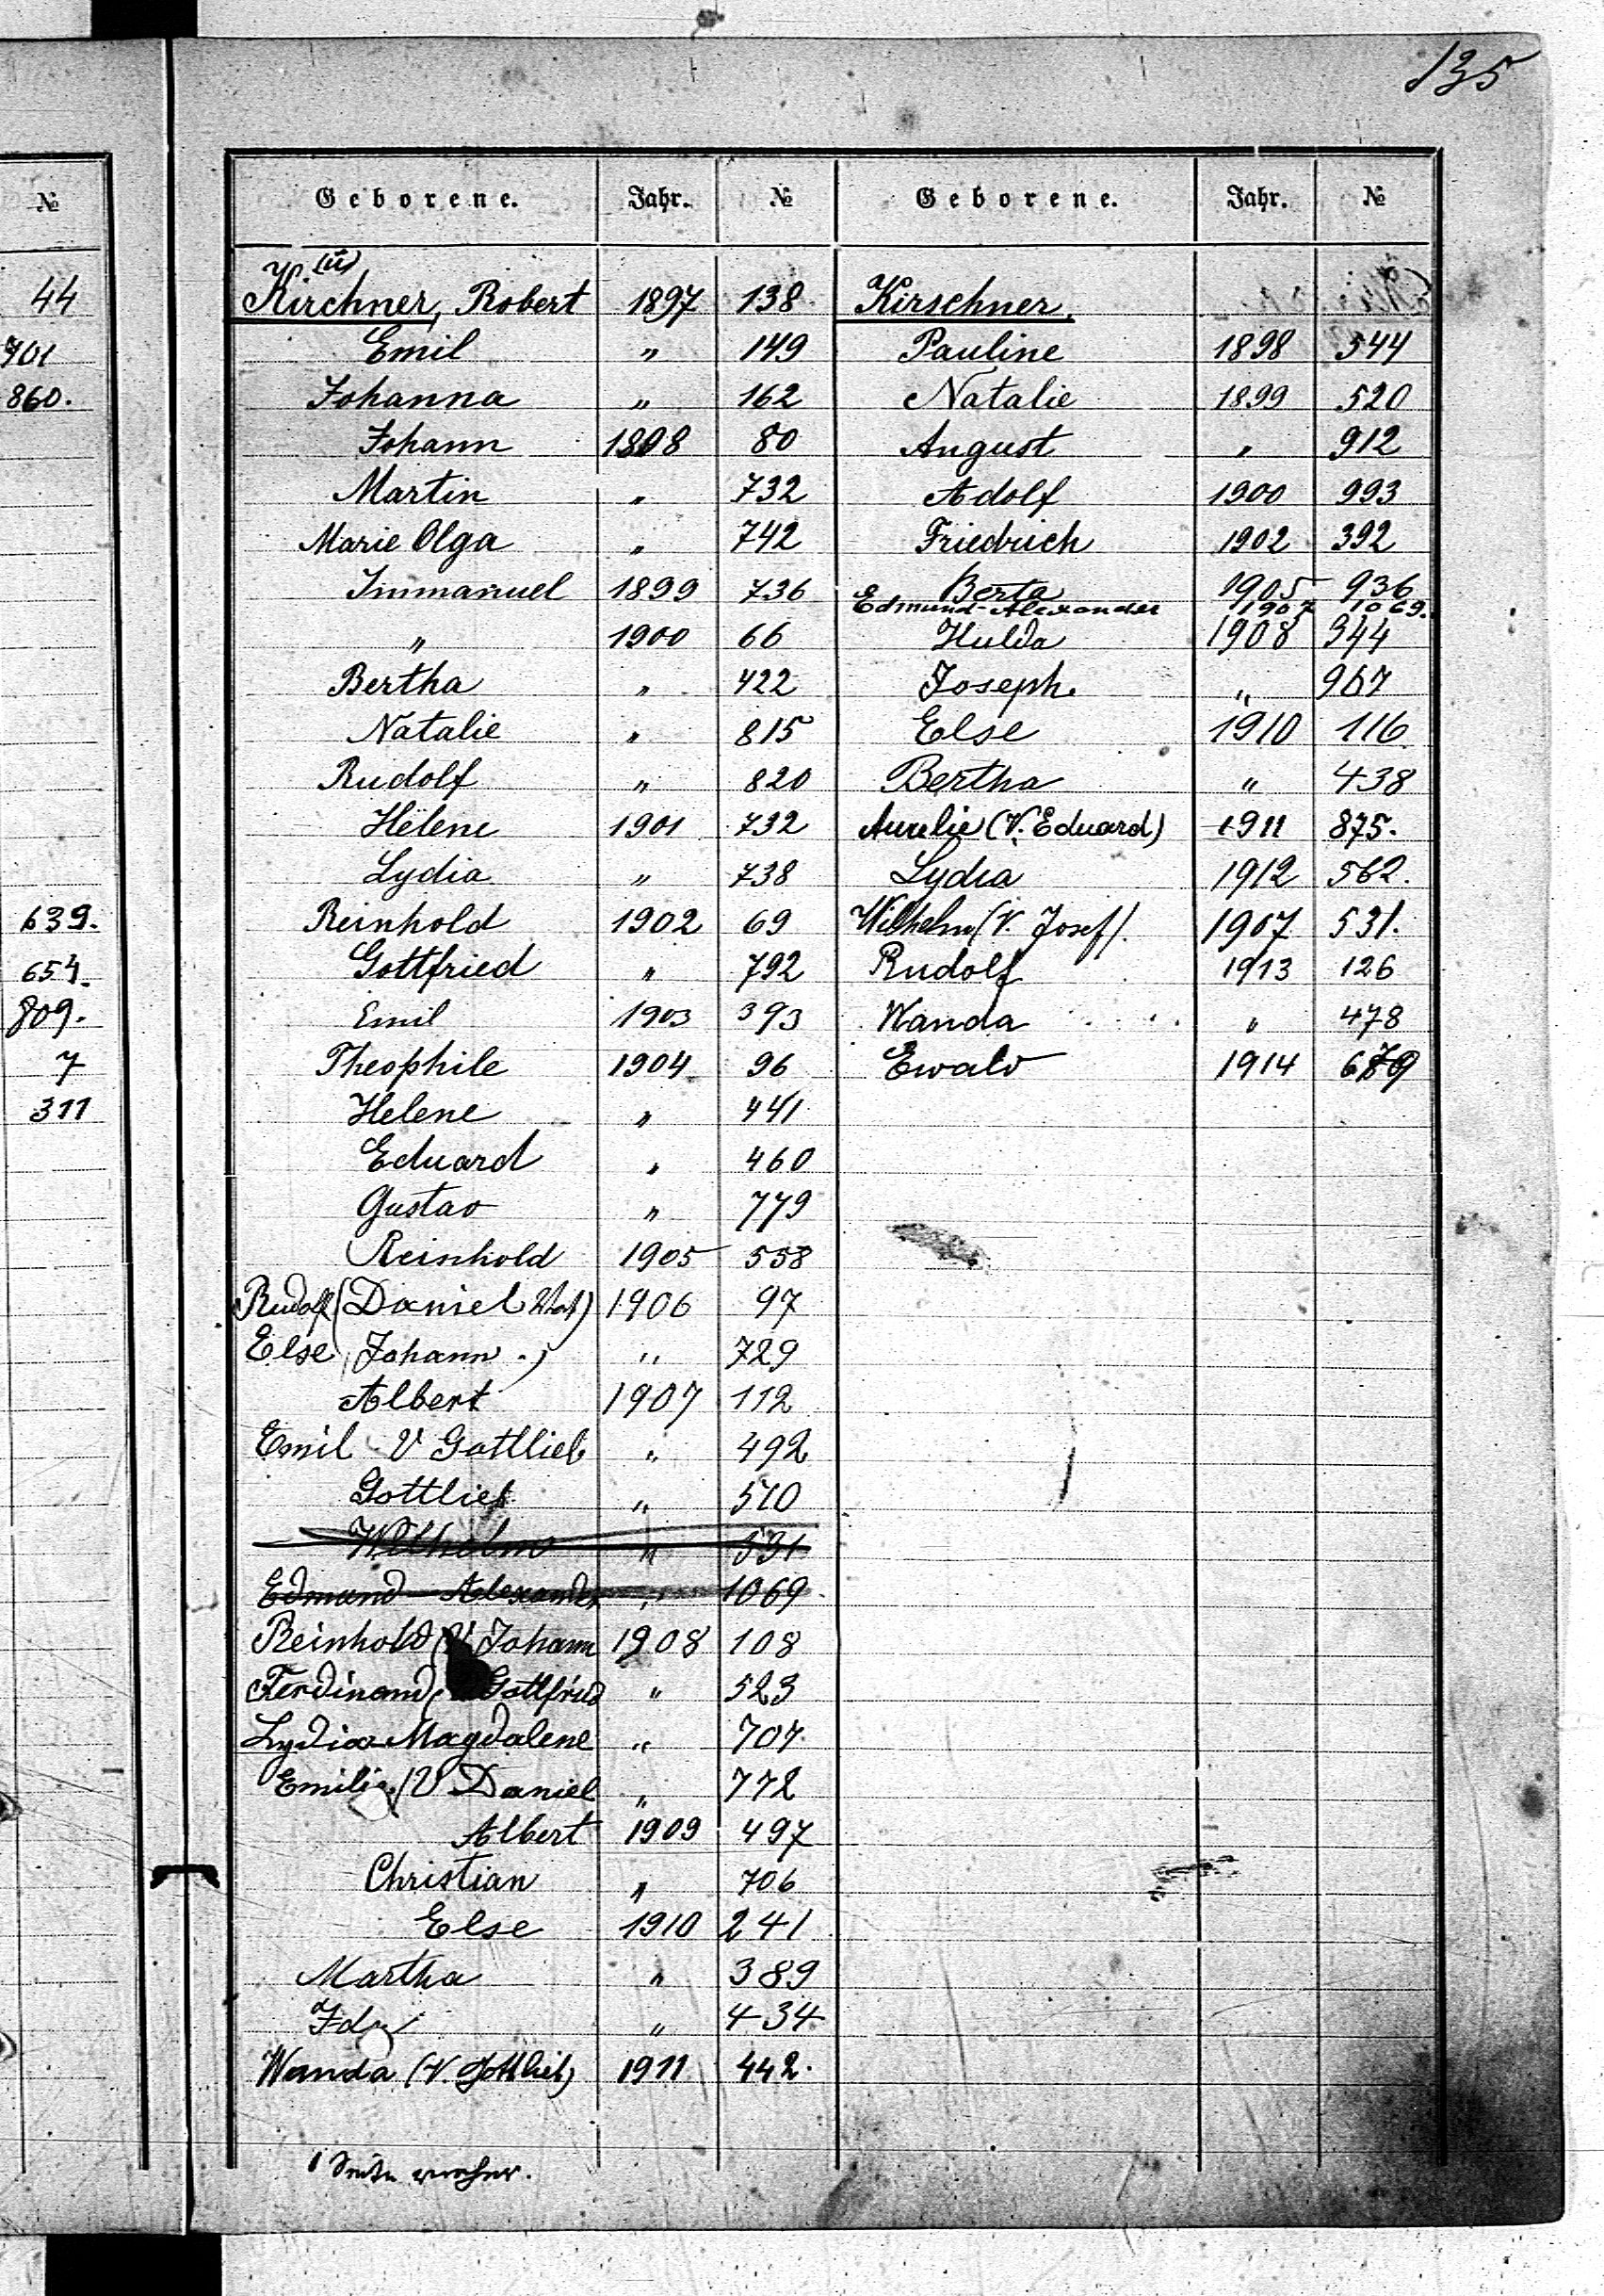 135
№
44
701
860.
639.
654.
809.
7
311
Geborene. Jahr. №
(ü)
Kirchner, Robert 1897 138
Emil " 149
Johanna " 162
Johann 1898 80
Martin " 732
Marie Olga " 742
Immanuel 1899 736
" 1900 66
Bertha " 422
Natalie " 815
Rudolf " 820
Helene 1901 732
Lydia " 738
Reinhold 1902 69
Gottfried " 792
Emil 1903 393
Theophile 1904 96
Helene " 441
Eduard " 460
Gustav " 779
Reinhold 1905 558
Rudolf (Daniel Vat) 1906 97
Else (Johann ") " 729
Albert 1907 112
Emil V Gottlieb " 492
Gottlieb " 510
Wilhelm " 531
Edmund-Alexander " 1069
Reinhold (V Johann 1908 108
Ferdinand ( Gottfried " 523
Lydia-Magdalene " 707
Emilie (V Daniel " 772
Albert 1909 497
Christian " 706
Else 1910 241
Martha " 389
Ida " 434
Wanda (V. Gottlieb) 1911 442.
1 Seite vorher.
Geborene. Jahr. №
Kirschner.
Pauline 1898 544
Natalie 1899 520
August " 912
Adolf 1900 993
Friedrich 1902 392
Berta 1905 936
Edmund-Alexander 1907 1069.
Hulda 1908 344
Joseph. " 967
Else 1910 116
Bertha " 438
Aurelie (V. Eduard) 1911 875.
Lydia 1912 562.
Wilhelm (V. Josef). 1907 531.
Rudolf 1913 126
Wanda " 478
Ewald 1914 679